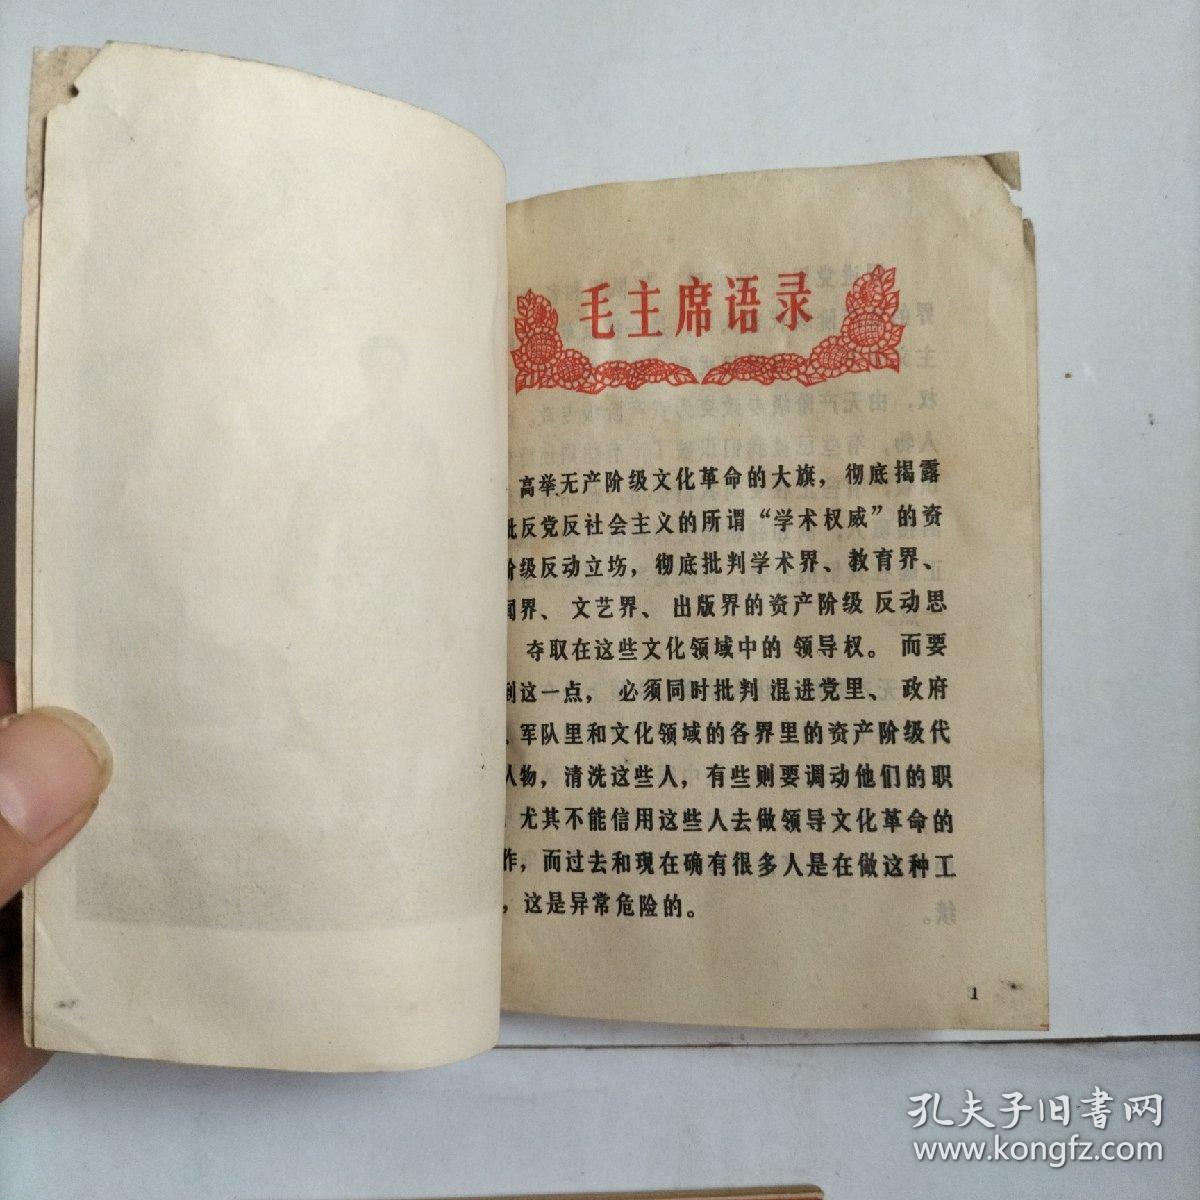 毛主席语录
高举无产阶级文化革命的大旗，彻底揭露
批反党反社会主义的所谓“学术权威”的资
阶级反动立坊，彻底批判学术界、教育界、
闻界、文艺界、出版界的资产阶级反动思
夺取在这些文化领域中的领导权。而要
到这一点，必须同时批判混进党里、政府
、军队里和文化领域的各界里的资产阶级代
人物，清洗这些人，有些则要调动他们的职
尤其不能信用这些人去做领导文化革命的
作，而过去和现在确有很多人是在做这种工
，这是异常危险的。
1
孔夫子旧书网
www.kongfz.com